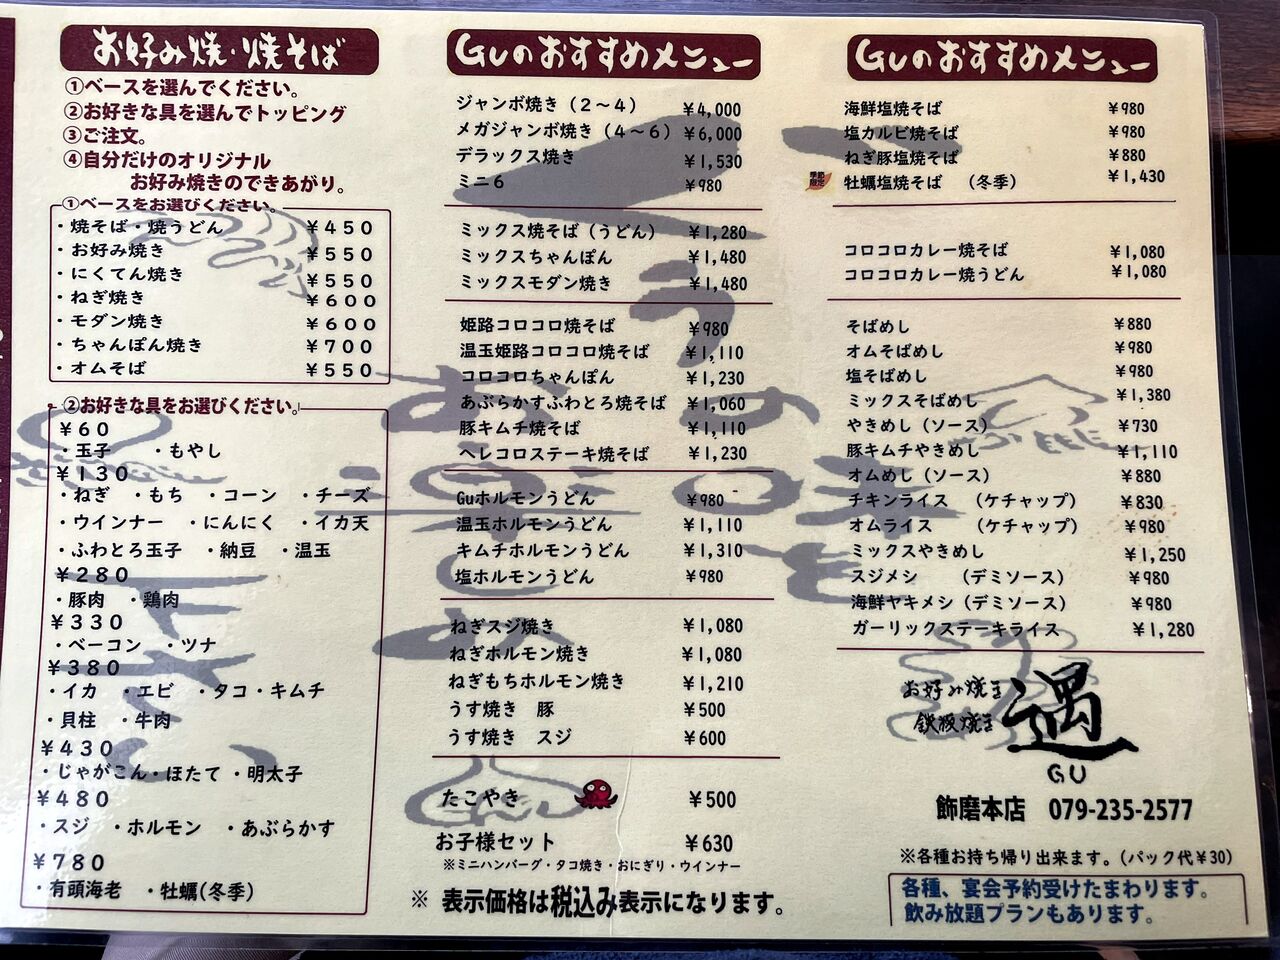 お好み焼・焼そば
①ベースを選んでください。
②お好きな具を選んでトッピング
③ご注文。
④自分だけのオリジナル
お好み焼きのできあがり。
①ベースをお選びください。
・焼そば・焼うどん ￥４５０
・お好み焼き ￥５５０
・にくてん焼き ￥５５０
・ねぎ焼き ￥６００
・モダン焼き ￥６００
・ちゃんぽん焼き ￥７００
・オムそば ￥５５０
②お好きな具をお選びください。
￥６０
・玉子 ・もやし
￥１３０
・ねぎ ・もち ・コーン ・チーズ
・ウインナー ・にんにく ・イカ天
・ふわとろ玉子 ・納豆 ・温玉
￥２８０
・豚肉 ・鶏肉
￥３３０
・ベーコン ・ツナ
￥３８０
・イカ ・エビ ・タコ・キムチ
・貝柱 ・牛肉
￥４３０
・じゃがこん・ほたて ・明太子
￥４８０
・スジ ・ホルモン ・あぶらかす
￥７８０
・有頭海老 ・牡蠣(冬季)
Guのおすすめメニュー
ジャンボ焼き（２～４） ￥4,000
メガジャンボ焼き（４～６） ￥6,000
デラックス焼き ￥1,530
ミニ６ ￥980
ミックス焼そば（うどん） ￥1,280
ミックスちゃんぽん ￥1,480
ミックスモダン焼き ￥1,480
姫路コロコロ焼そば ￥980
温玉姫路コロコロ焼そば ￥1,110
コロコロちゃんぽん ￥1,230
あぶらかすふわとろ焼そば ￥1,060
豚キムチ焼そば ￥1,110
ヘレコロステーキ焼そば ￥1,230
Guホルモンうどん ￥980
温玉ホルモンうどん ￥1,110
キムチホルモンうどん ￥1,310
塩ホルモンうどん ￥980
ねぎスジ焼き ￥1,080
ねぎホルモン焼き ￥1,080
ねぎもちホルモン焼き ￥1,210
うす焼き 豚 ￥500
うす焼き スジ ￥600
たこやき ￥500
お子様セット ￥630
※ミニハンバーグ・タコ焼き・おにぎり・ウインナー
※ 表示価格は税込み表示になります。
Guのおすすめメニュー
海鮮塩焼そば ￥980
塩カルビ焼そば ￥980
ねぎ豚塩焼そば ￥880
季節限定 牡蠣塩焼そば （冬季） ￥1,430
コロコロカレー焼そば ￥1,080
コロコロカレー焼うどん ￥1,080
そばめし ￥880
オムそばめし ￥980
塩そばめし ￥980
ミックスそばめし ￥1,380
やきめし（ソース） ￥730
豚キムチやきめし ￥1,110
オムめし（ソース） ￥880
チキンライス （ケチャップ） ￥830
オムライス （ケチャップ） ￥980
ミックスやきめし ￥1,250
スジメシ （デミソース） ￥980
海鮮ヤキメシ（デミソース） ￥980
ガーリックステーキライス ￥1,280
お好み焼き
鉄板焼き
遇
GU
飾磨本店 079-235-2577
※各種お持ち帰り出来ます。（パック代￥30）
各種、宴会予約受けたまわります。
飲み放題プランもあります。